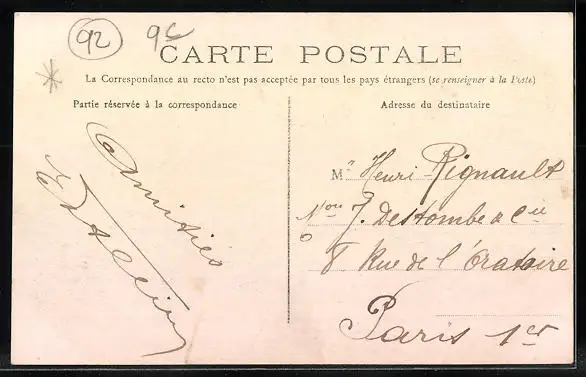 92 9c
CARTE POSTALE
La Correspondance au recto n'est pas acceptée par tous les pays étrangers (se renseigner à la Poste)
Partie réservée à la correspondance
Adresse du destinataire
Amitiés
Mr Henri Rignault
Mon J. Destombe & Cie
8 Rue de l'Oratoire
Paris 1er